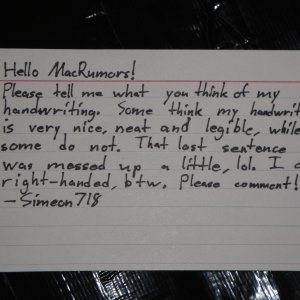 Hello MacRumors!
Please tell me what you think of my
handwriting. Some think my handwrit
is very nice, neat and legible, while
some do not. That last sentence
was messed up a little, lol. I a
right-handed, btw. Please comment!
-Simeon718